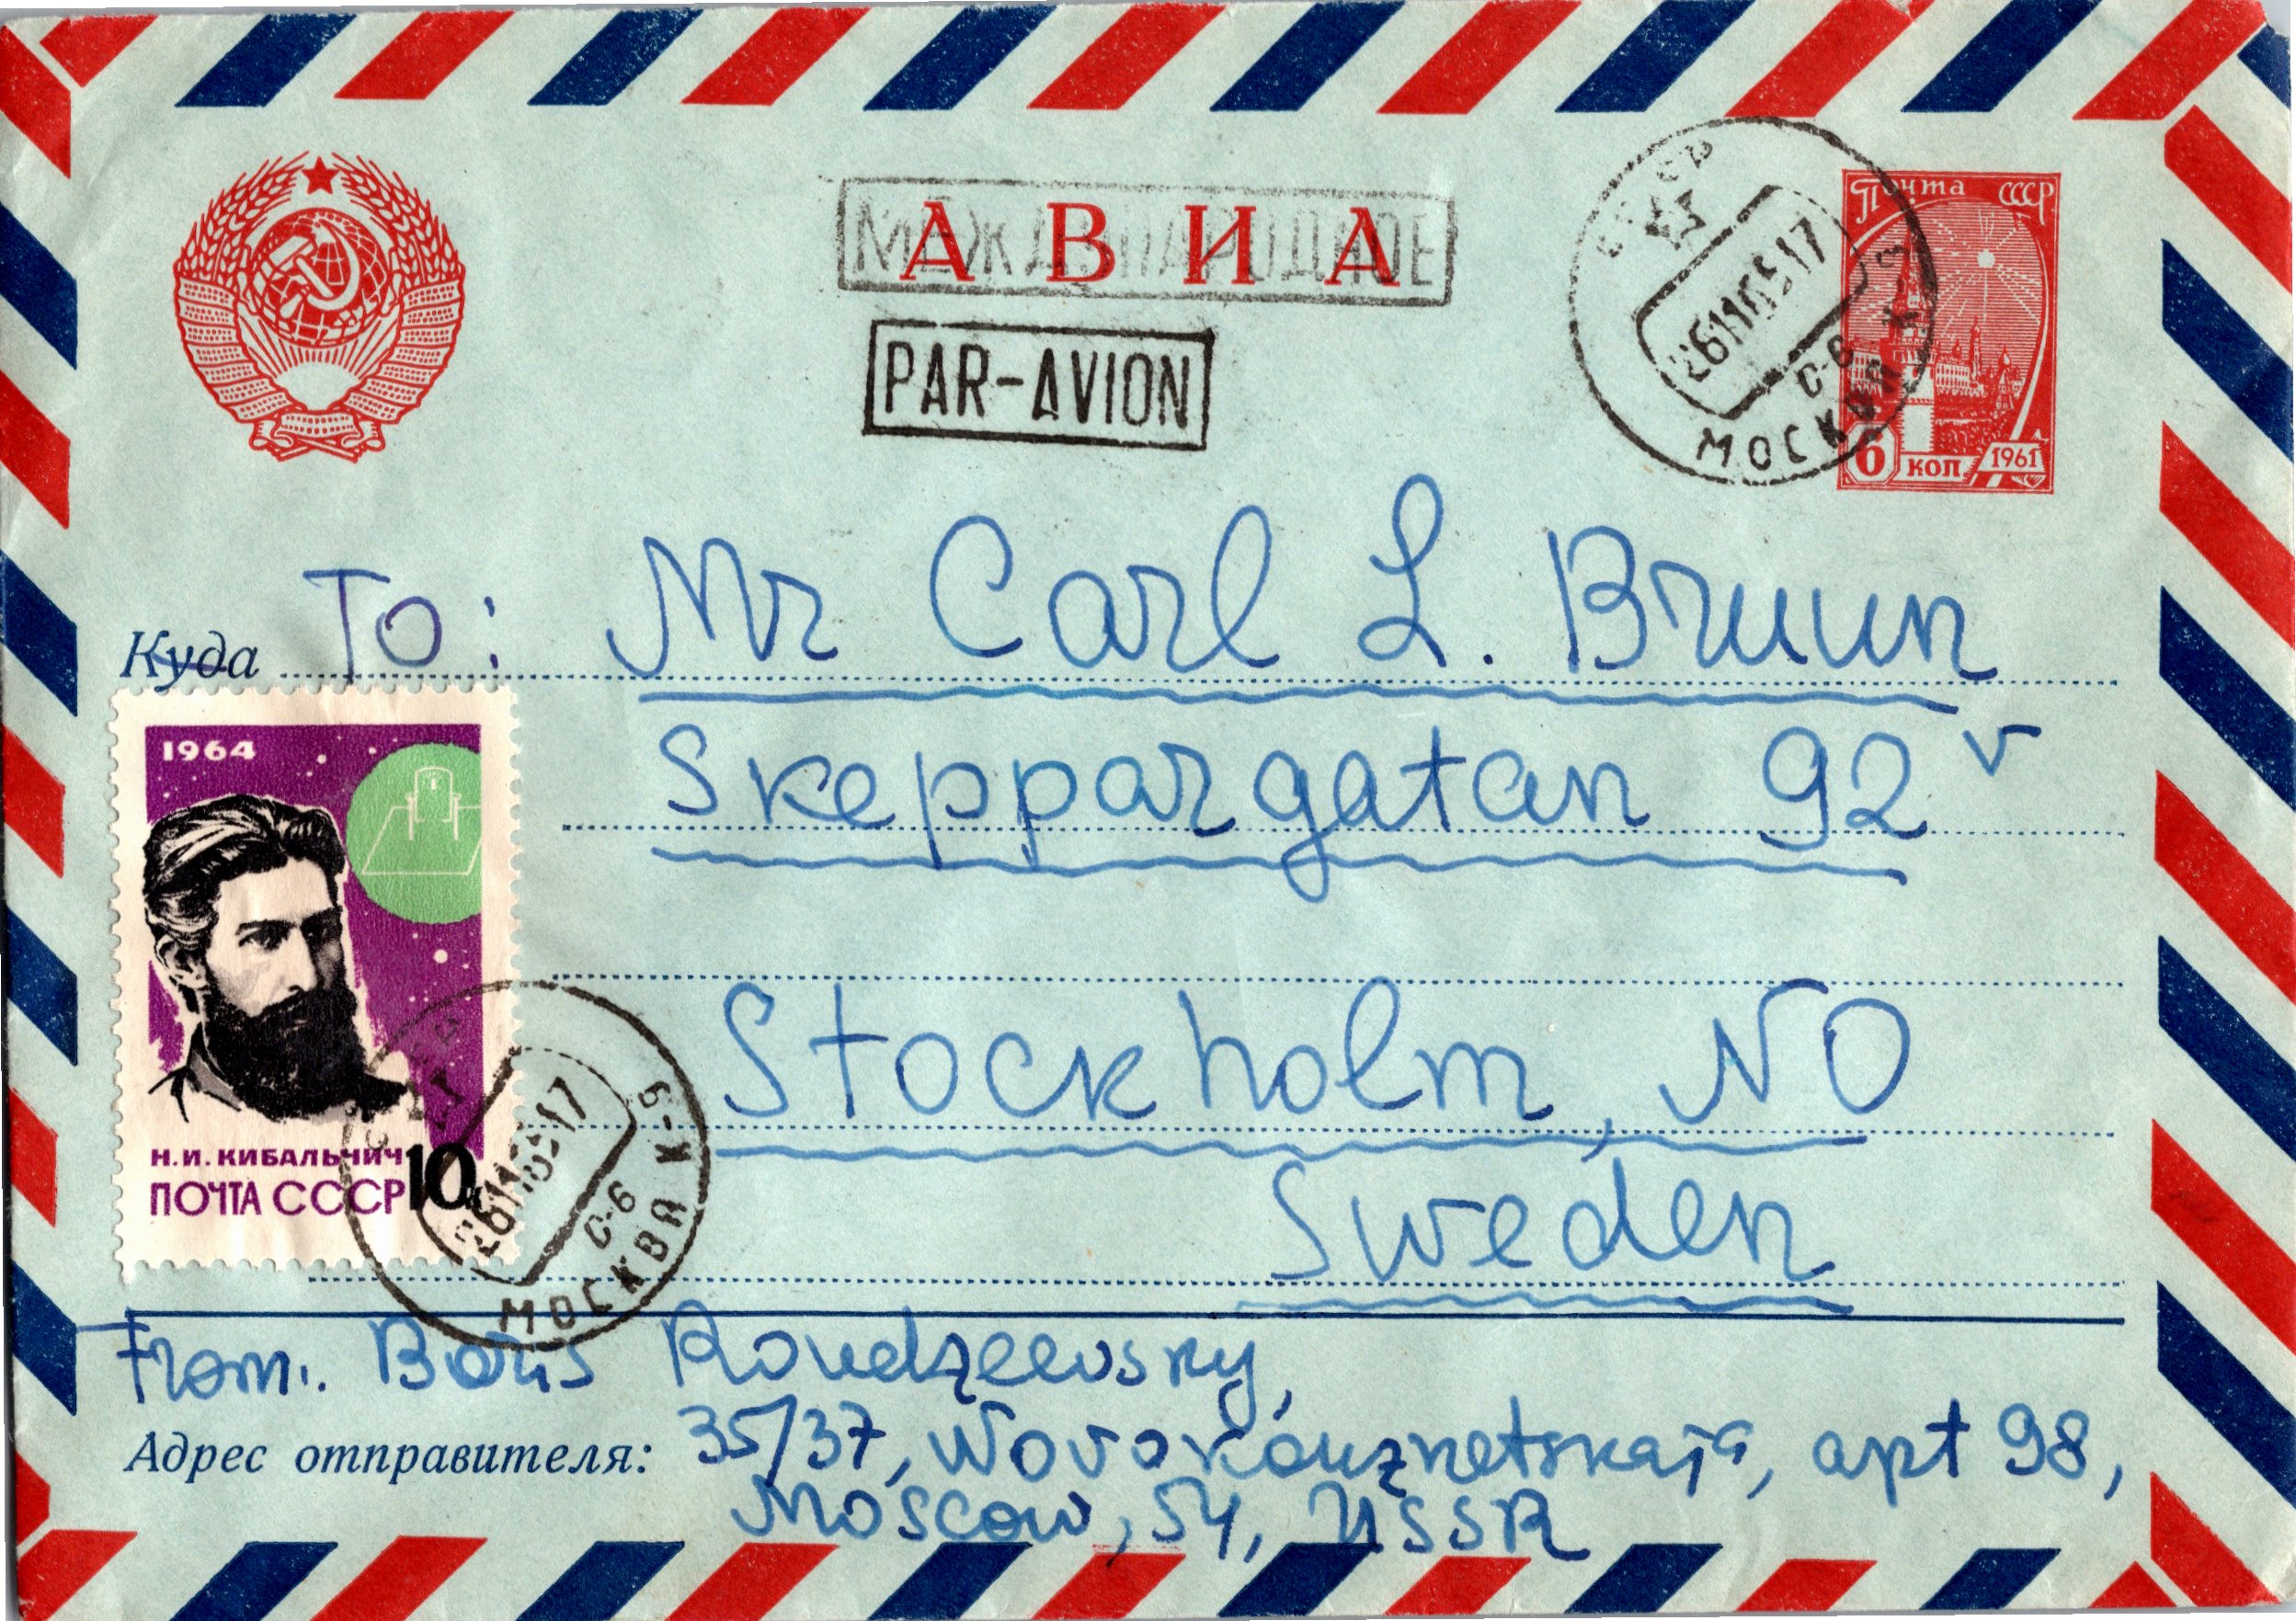 МЕЖДУНАРОДНОЕ
АВИА
PAR-AVION
Почта СССР
6 коп 1961
261165 17
С-6
МОСКВА К-9
Куда To: Mr Carl L. Bruun
Skeppargatan 92 v
Stockholm, NO
Sweden
1964
Н.И. КИБАЛЬЧИЧ
ПОЧТА СССР 10к
261165 17
С-6
МОСКВА К-9
From: Boris Roudzeevsky,
Адрес отправителя: 35/37, Novokouznetskaja, apt 98,
Moscow, 54, USSR